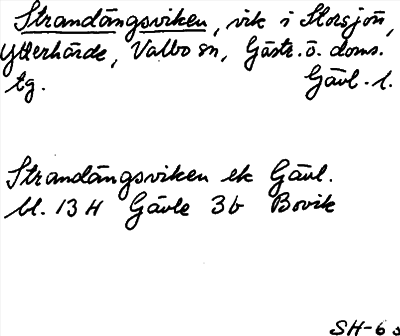 Strandängsviken, vik i Storsjön,
Ytterhärde, Valbo sn, Gästr. ö. doms.
tg. Gävl. l.
Strandängsviken ek Gävl.
bl. 13 H Gävle 3b Bovik
SH-6